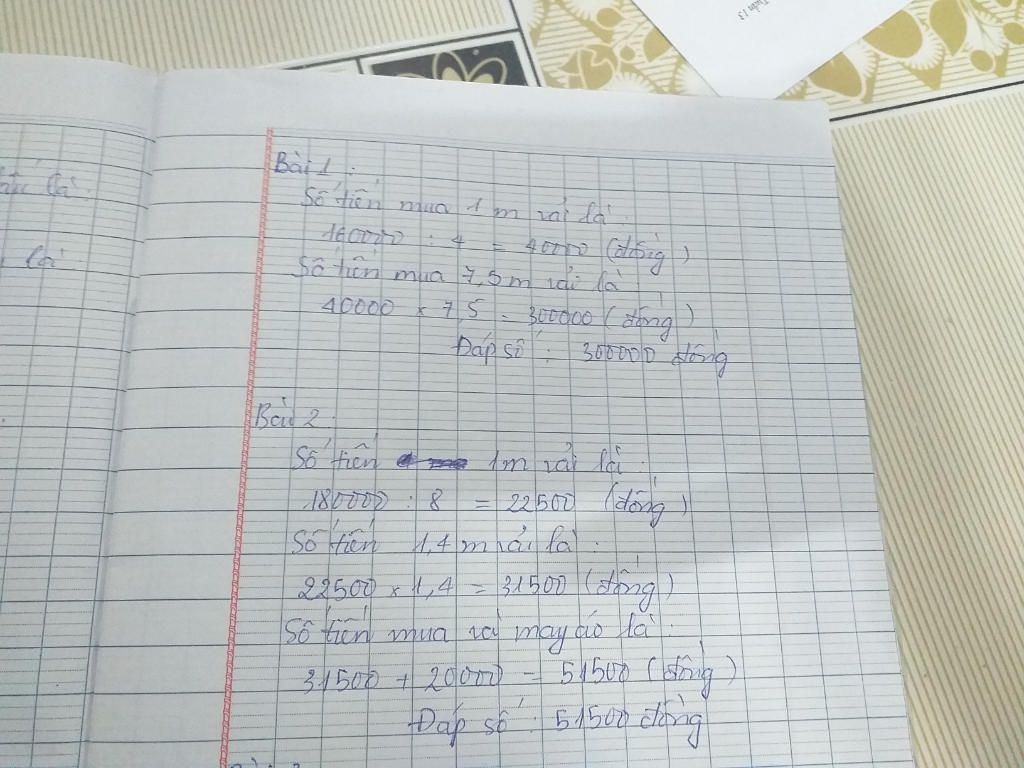 Tuần 13
Bài 1 :
Số tiền mua 1 m vải là :
160000 : 4 = 40000 (đồng)
Số tiền mua 7,5m vải là
40000 x 7,5 = 300000 (đồng)
Đáp số : 300000 đồng
Bài 2 :
Số tiền 1m vải là :
180000 : 8 = 22500 (đồng)
Số tiền 1,4m vải là :
22500 x 1,4 = 31500 (đồng)
Số tiền mua và may áo là :
31500 + 20000 = 51500 (đồng)
Đáp số : 51500 đồng
là :
là :